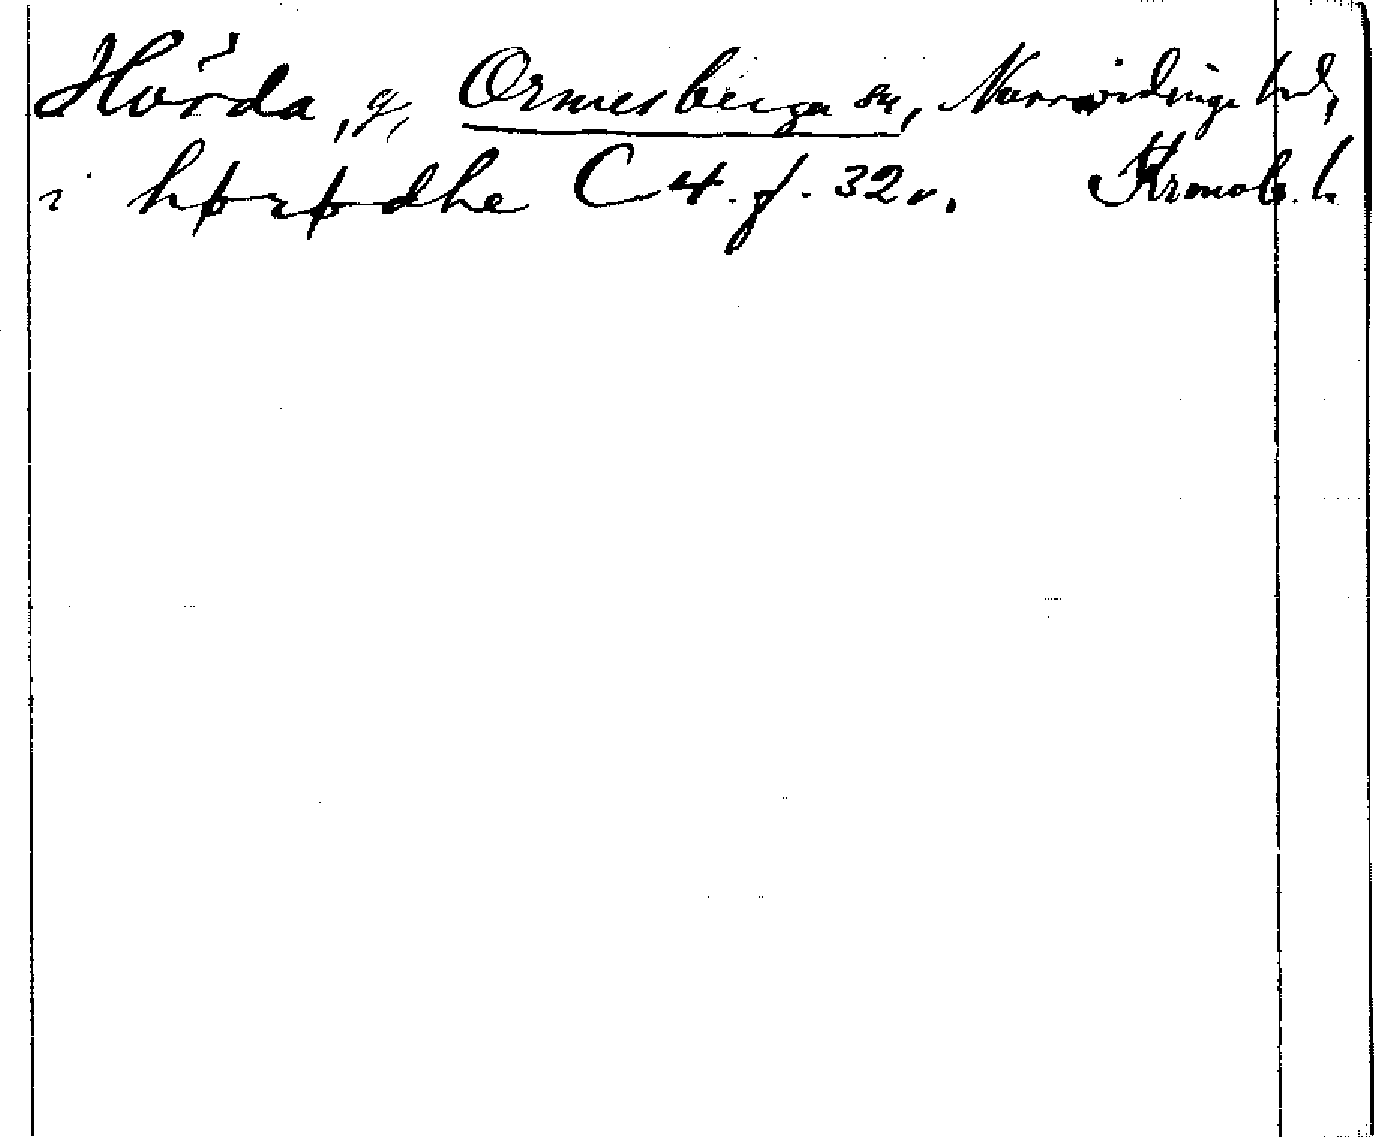 Hörda, g, Ormesberga sn, Norrvidinge hd,
i hørødhe C 4. f. 32 v. Kronob. l.